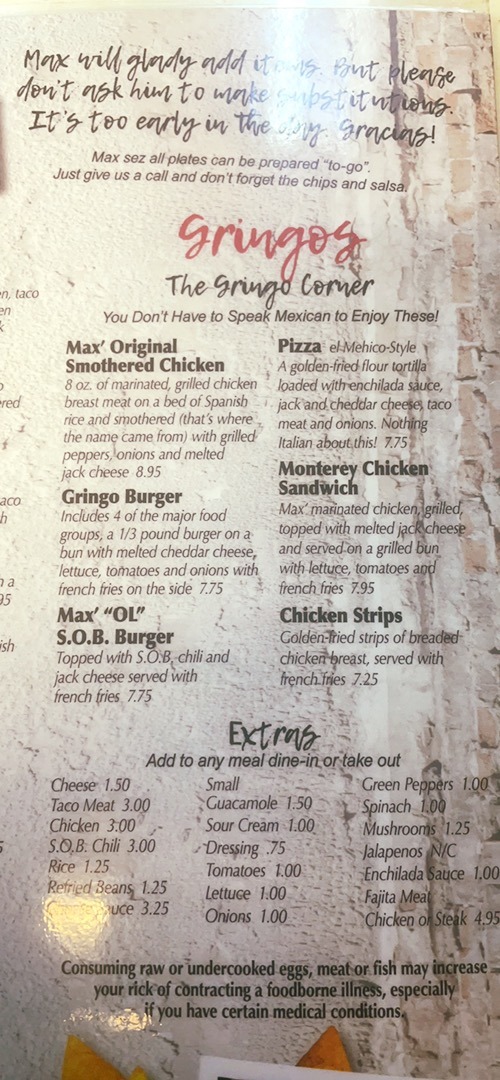 Max will glady add items. But please
don't ask him to make substitutions.
It's too early in the day. Gracias!
Max sez all plates can be prepared "to-go".
Just give us a call and don't forget the chips and salsa.
Gringos
The Gringo Corner
You Don't Have to Speak Mexican to Enjoy These!
Max' Original
Smothered Chicken
8 oz. of marinated, grilled chicken
breast meat on a bed of Spanish
rice and smothered (that's where
the name came from) with grilled
peppers, onions and melted
jack cheese 8.95
Gringo Burger
Includes 4 of the major food
groups, a 1/3 pound burger on a
bun with melted cheddar cheese,
lettuce, tomatoes and onions with
french fries on the side 7.75
Max' "OL"
S.O.B. Burger
Topped with S.O.B. chili and
jack cheese served with
french fries 7.75
Pizza el-Mehico-Style
A golden-fried flour tortilla
loaded with enchilada sauce,
jack and cheddar cheese, taco
meat and onions. Nothing
Italian about this! 7.75
Monterey Chicken
Sandwich
Max' marinated chicken, grilled,
topped with melted jack cheese
and served on a grilled bun
with lettuce, tomatoes and
french fries 7.95
Chicken Strips
Golden-fried strips of breaded
chicken breast, served with
french fries 7.25
Extras
Add to any meal dine-in or take out
Cheese 1.50
Taco Meat 3.00
Chicken 3.00
S.O.B. Chili 3.00
Rice 1.25
Refried Beans 1.25
3.25
Small
Guacamole 1.50
Sour Cream 1.00
Dressing .75
Tomatoes 1.00
Lettuce 1.00
Onions 1.00
Green Peppers 1.00
Spinach 1.00
Mushrooms 1.25
Jalapenos N/C
Enchilada Sauce 1.00
Fajita Meat
Chicken or Steak 4.95
Consuming raw or undercooked eggs, meat or fish may increase
your rick of contracting a foodborne illness, especially
if you have certain medical conditions.